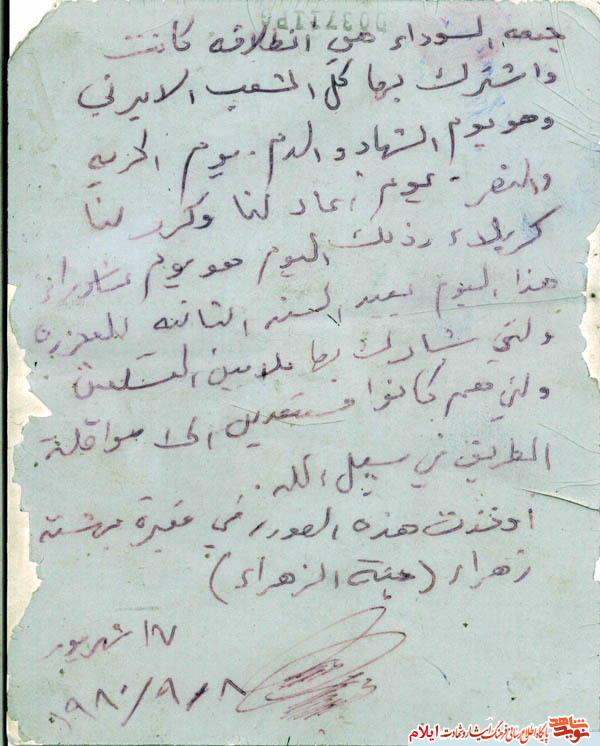 D037119G
جمعه السوداء هي انطلاقه كانت
واشترك بها كل الشعب الايرني
وهو يوم الشهاد والدم - يوم الحريه
والنصر - يوم اعاد لنا وكرر لنا
كربلاء وذلك اليوم هو يوم عاشوراء
هذا اليوم يعيد السنه الثانيه للمجزره
ولتي شارك بها ملايين المسلمين
ولتي معهم كانوا مستعدين الى مواقلة
الطريق في سبيل الله.
اوخذت هذه الصوره في مقبرة بهشته
زهراء (جنة الزهراء)
١٧ شهريور
١٩٨٠/٩/٨
شاهد
نوید
پایگاه اطلاع رسانی فرهنگ ایثار و شهادت ایلام